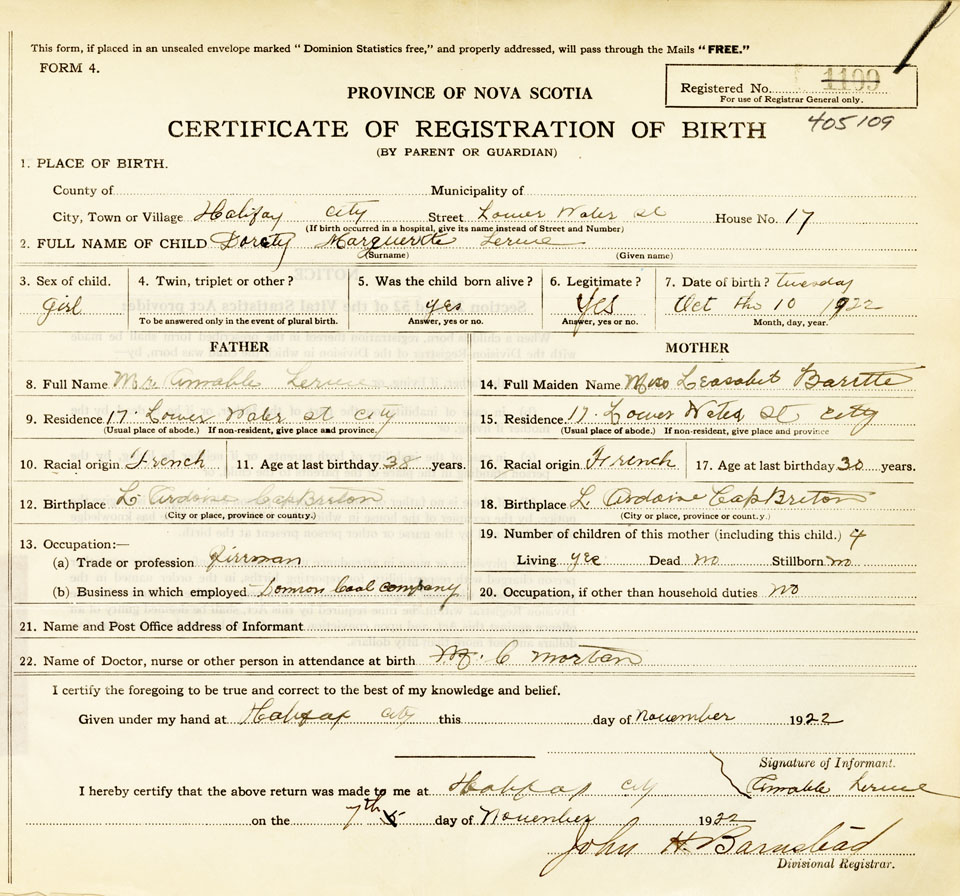 This form, if placed in an unsealed envelope marked "Dominion Statistics free," and properly addressed, will pass through the Mails "FREE."
FORM 4.
Registered No. 1109
For use of Registrar General only.
PROVINCE OF NOVA SCOTIA
405109
CERTIFICATE OF REGISTRATION OF BIRTH
(BY PARENT OR GUARDIAN)
1. PLACE OF BIRTH.
County of Municipality of
City, Town or Village Halifax City Street Lower Water St House No. 17
(If birth occurred in a hospital, give its name instead of Street and Number)
2. FULL NAME OF CHILD Doraty Marguerette
(Surname) (Given name)
3. Sex of child. 4. Twin, triplet or other? 5. Was the child born alive? 6. Legitimate? 7. Date of birth? tuesday
girl yes Yes Oct the 10 1922
To be answered only in the event of plural birth. Answer, yes or no. Answer, yes or no. Month, day, year.
FATHER MOTHER
8. Full Name Mr Amable 14. Full Maiden Name Leasabet Barette
9. Residence 17. Lower Water st city 15. Residence 17. Lower Water St City
(Usual place of abode.) If non-resident, give place and province. (Usual place of abode.) If non-resident, give place and province
10. Racial origin French 11. Age at last birthday 38 years. 16. Racial origin French 17. Age at last birthday 30 years.
12. Birthplace L Ardoise Cap Breton 18. Birthplace L Ardoise Cap Breton
(City or place, province or country.) (City or place, province or count.y.)
19. Number of children of this mother (including this child.) 4
13. Occupation:—
(a) Trade or profession Firrman Living yee Dead no Stillborn no
(b) Business in which employed Coal company 20. Occupation, if other than household duties no
21. Name and Post Office address of Informant
22. Name of Doctor, nurse or other person in attendance at birth C Mortan
I certify the foregoing to be true and correct to the best of my knowledge and belief.
Given under my hand at Halifax City this day of November 1922
Signature of Informant.
I hereby certify that the above return was made to me at Halifax City Amable
on the 7th day of November 1922
John H. Barnstead
Divisional Registrar.